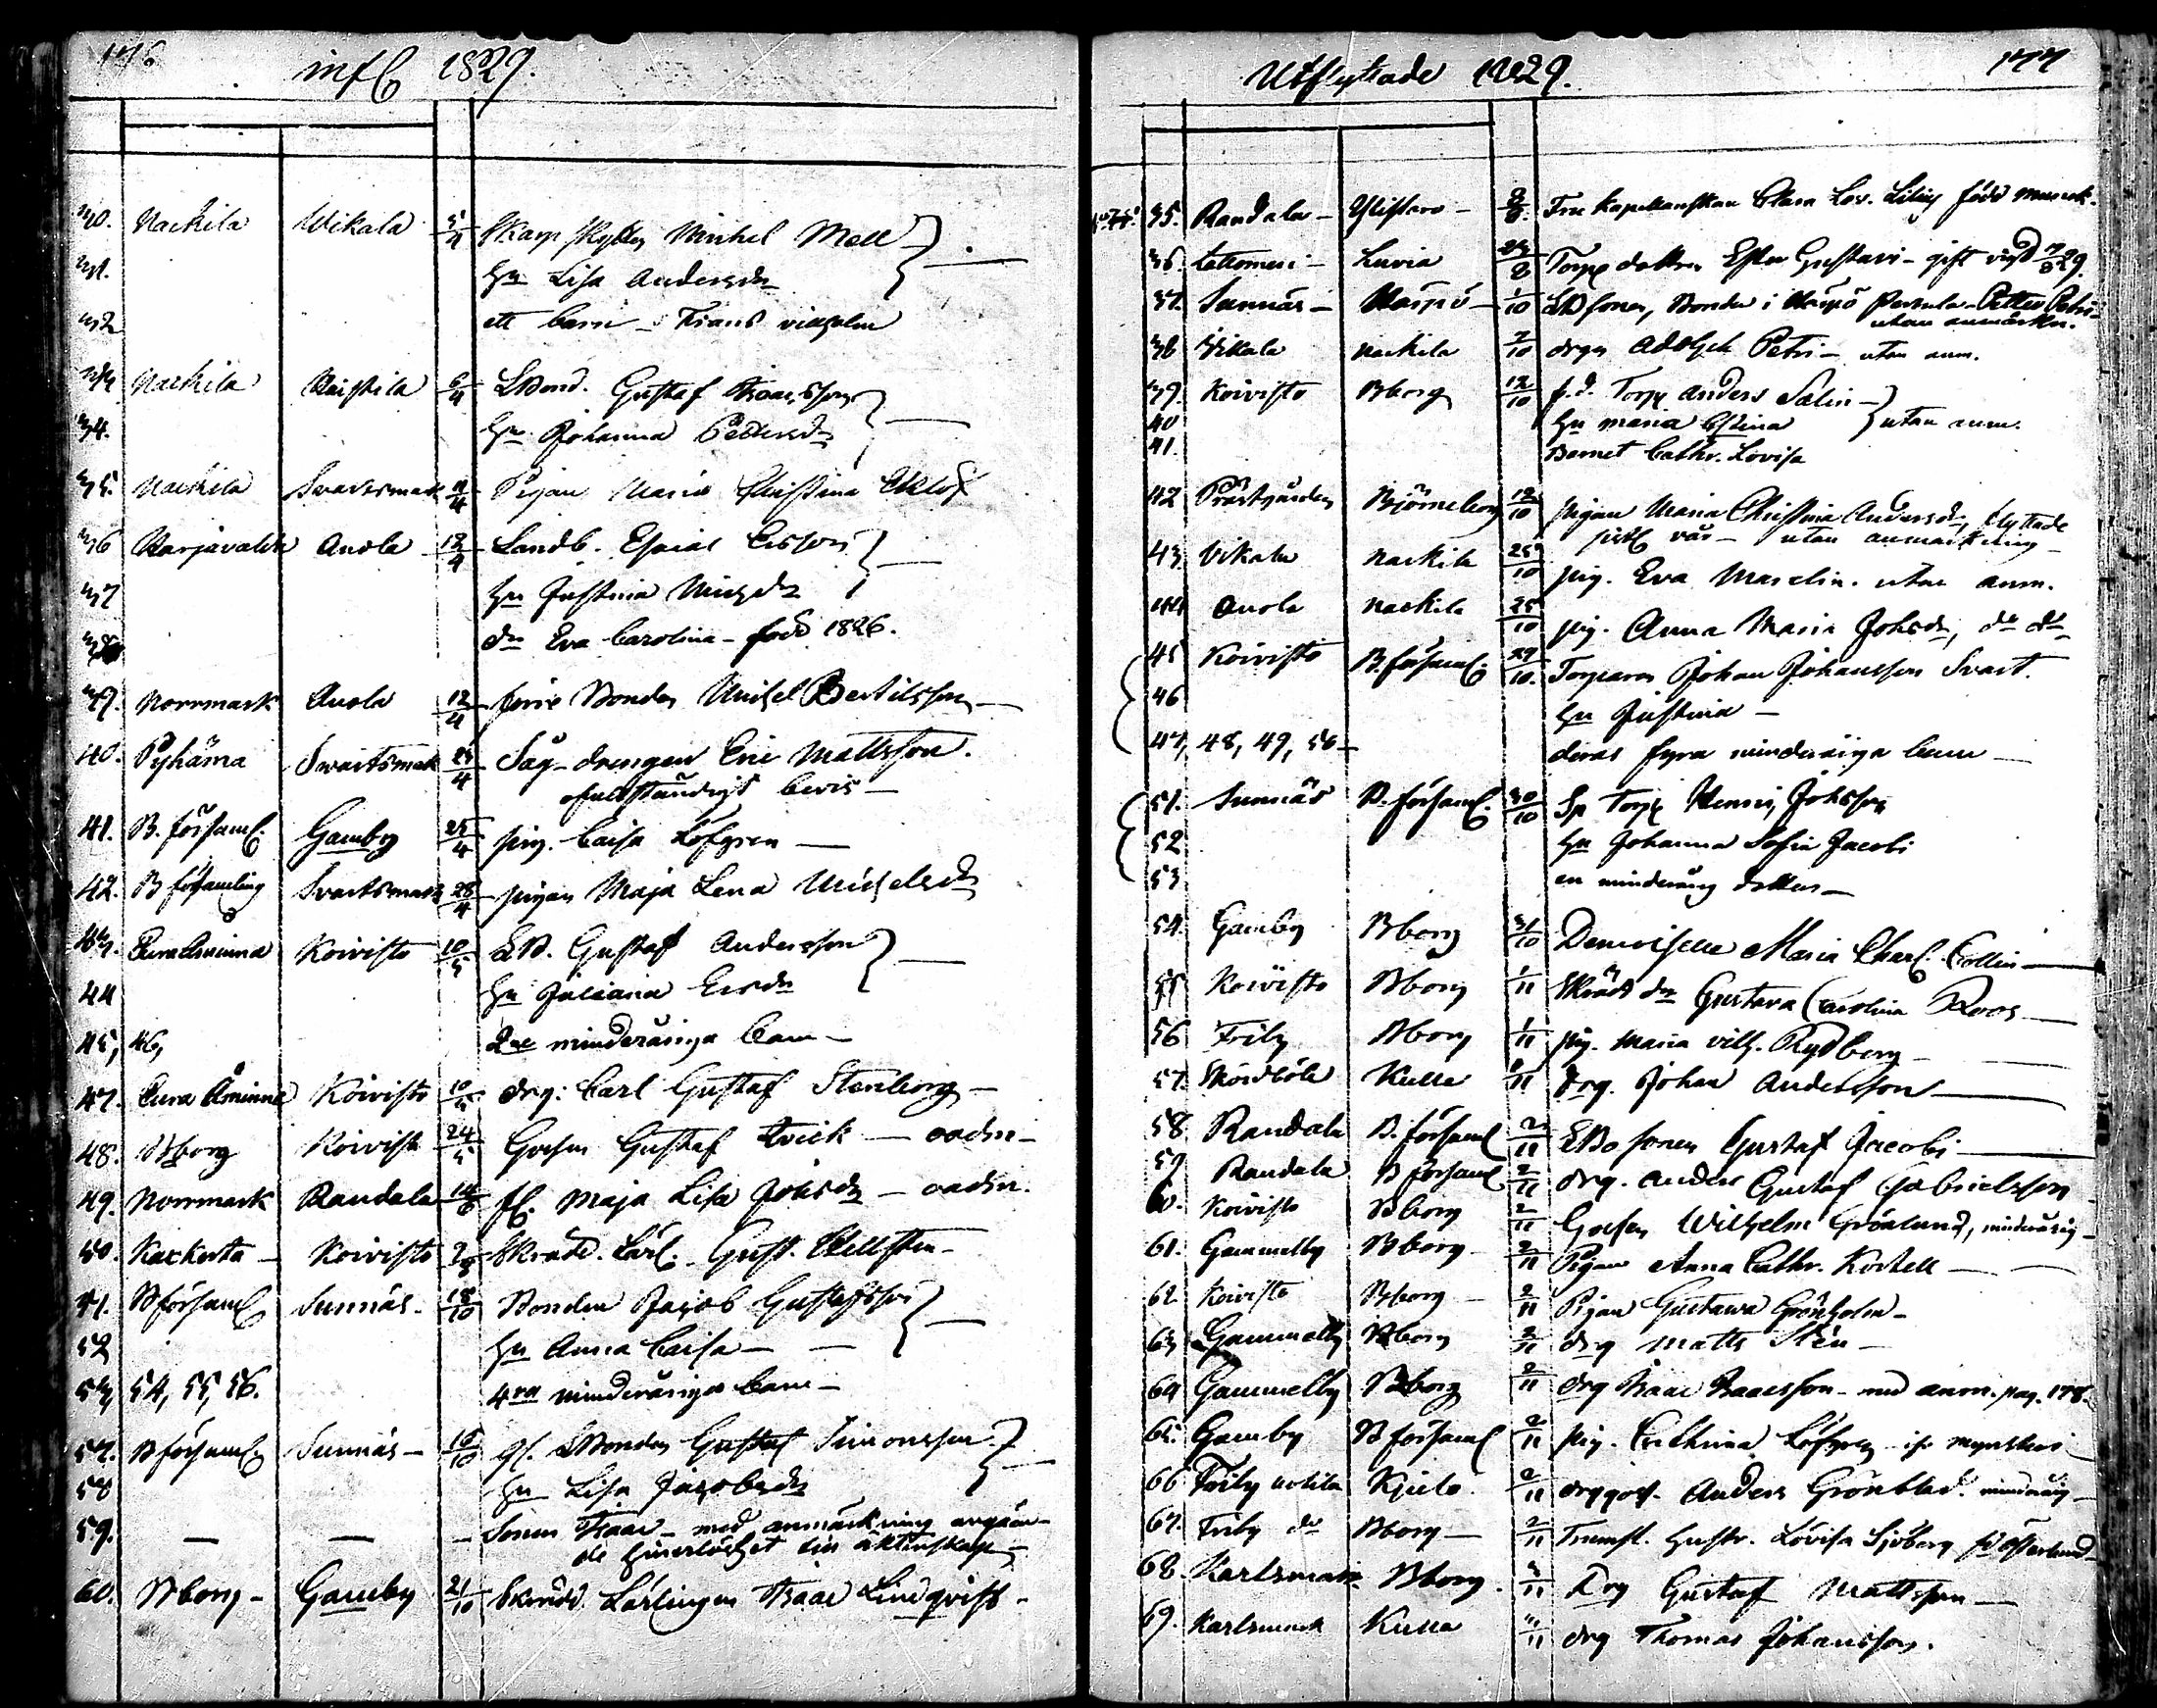 176
infl 1829.
30. Nackila Wikala 5/4 Skarp Skytten Michel Mell
31. hu Lisa Andersdr
32 ett barn Frans
33 Nackila 6/4 LBond. Gustaf Isaacsson
34. hu Johanna Pettersdr
35. Nackila Svartsmark 11/4 Pigan Maria Christina Eklöf
36 Harjavalda Anola 12/4 Landb. Esaias Ersson
37 hu Justina Michsdr
38 dr Eva Carolina född 1826.
39. Norrmark Anola 12/4 förre Bonden Michel Bertilsson
40. Pyhäma Swartsmark 25/4 Såg-drengen Eric Mattsson.
ofullständigt bevis
41. B. församl. Gamby 25/4 pig. Caisa Löfgren
42. B församling Svartsmark 28/4 pigan Maja Lena Michelsdr
43. Eura Åminna Koivisto 10/5 LB. Gustaf Andersson
44 hu Juliana Ersdr
45, 46, 2ne minderåriga barn
47. Eura Åminne Koivisto 10/5 drg. Carl Gustaf Stenborg
48. Bborg Koivisto 24/5 Gossen Gustaf Qvick oadm
49. Norrmark Randala fl. Maja Lisa Johsdr oadm.
50. Koivisto Skrädd. Lärl. Gust. Hellsten
51. B församl Sunnäs 18/10 Bonden Jacob Gustafsson
52 hu Anna Caisa
53, 54, 55, 56. 4ra minderåriga barn
57. B församl Sunnäs 18/10 gl. LBonden Gustaf Simonsson
58 hu Lisa Jacobsdr
59. Sonen Isaac med anmärkning angåen-
de hinderlöshet till äktenskap
60. Bborg Gamby 21/10 Skrädd. Lärlingen Isaac Lindqvist
Utflyttade 1829. 177
35. Randala Ylistaro Fru Kapellanskan Clara Lov. Lilius född Munck.
36. Lattomeri Luvia Torpe dottren Ester Gustavi gift vigd
37. Sunnäs 1/10 LBsonen, Bonden i Petter Petri
utan anmärkn.
38 Vikala Nackila 7/10 drgn Adolph Petri utan anm.
39. Koivisto Bborg 12/10 f.d. Torp Anders Salin
40 hu Maria Stina utan anm.
41. Barnet Cathr. Lovisa
42 Prästgården Björneborg 12/10 pigan Maria Christina Andersdr, flyttade
sistl vår utan anmärkning
43 Vikala Nackila 25/10 pig. Eva Marcelin. utan anm.
44 Anola Nackila 25/10 pig. Anna Maria Johsdr, do do
45 Koivisto B. församl. 29/10. Torparen Johan Johansson Svart.
46 hu Justina
47, 48, 49, 50 deras fyra minderåriga barn
51. Sunnäs B. församl. 30/10 Sp Torp Henric Johsson
52 hu Johanna Sofia Jacobi
53 en minderårig dotter
54. Gamby Bborg 31/10 Demoiselle Maria Charl. Collin
55 Koivisto Bborg 1/11 Skrädd dr Gustava Carolina Roos
56 Friby Bborg 1/11 pig. Maria Vilh. Rydberg
57. Kulla drg. Johan Andersson
58 Randala B. församl 2/11 LBo sonen Gustaf Jacobi
59 Randala B församl 2/11 drg. Anders Gustaf Gabrielsson
60. Koivisto Bborg 2/11 Gossen Wilhelm Grönlund, minderårig
61. Gammelby Bborg 2/11 Pigan Anna Cathr. Kortell
62 Koivisto Bborg 2/11 Pigan Gustawa Grönholm
63 Gammelby Bborg 2/11 drg Matts Stén
64 Gammelby Bborg 2/11 drg Isaac Isacsson med anm. pag. 178.
65. Gamby B församl 2/11 pig. Cathrina Löfgren
66 Friby Kjulo 2/11 drggoss. Anders Grönblad. minderårig
67. Friby do Bborg 2/11 Trumsl. hustr. Lovisa Sjöberg
68. Karlsmark Bborg Drg Gustaf Mattsson
69. Karlsmark Kulla drg Thomas Johansson.